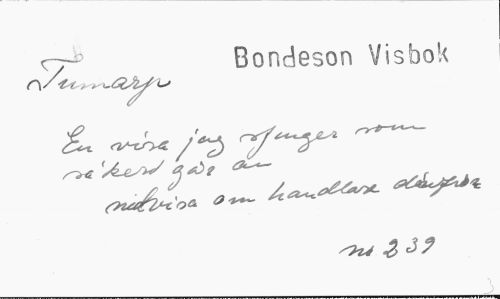 Bondeson Visbok
Tumarp
En visa jag sjunger som
säkert går an
nidvisa om handlare därifrån
no 239